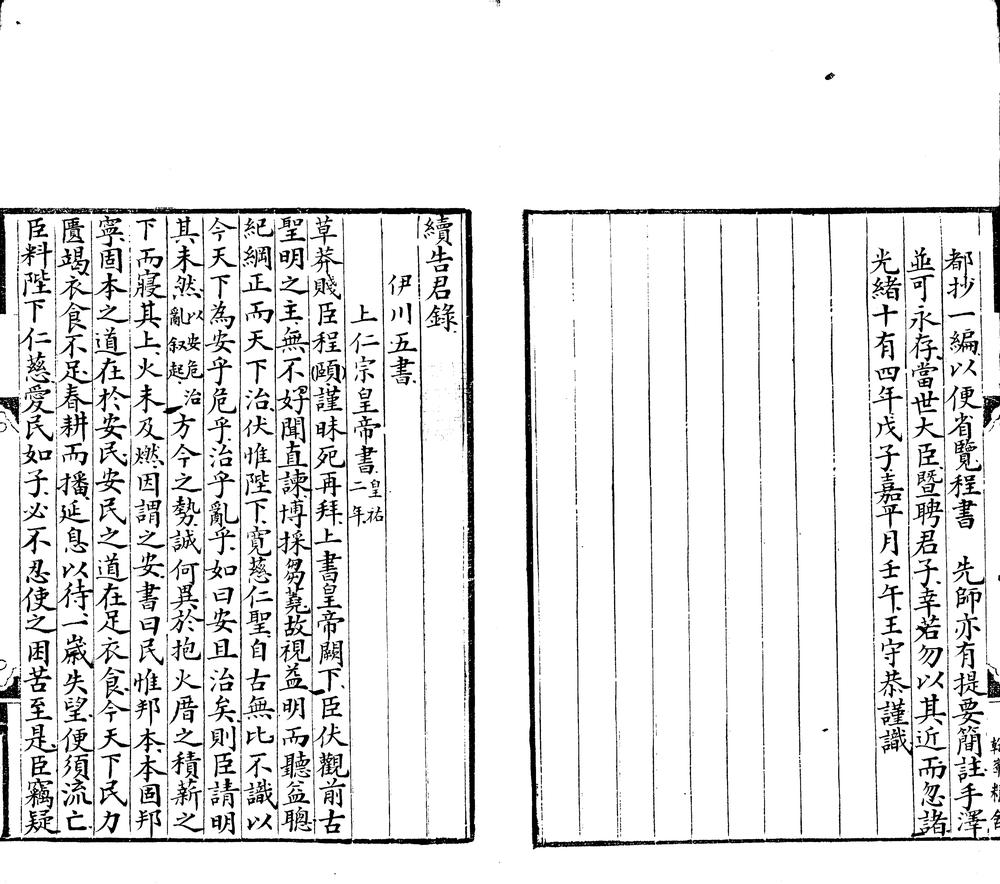 都抄一編以便省覽程書　先師亦有提要簡註手澤
並可永存當世大臣暨聘君子幸若勿以其近而忽諸
光緒十有四年戊子嘉平月壬午王守恭謹識
續告君錄
伊川五書
上仁宗皇帝書皇祐二年
草莽賤臣程(頤)謹昧死再拜上書皇帝闕下臣伏觀前古
聖明之主無不好聞直諫博採芻蕘故視益明而聽益聰
紀綱正而天下治伏惟陛下寬慈仁聖自古無比不識以
今天下為安乎危乎治乎亂乎如曰安且治矣則臣請明
其未然以安危治亂叙起方今之勢誠何異於抱火厝之積薪之
下而寢其上火未及燃因謂之安書曰民惟邦本本固邦
寧固本之道在於安民安民之道在足衣食今天下民力
匱竭衣食不足春耕而播延息以待一歲失望便須流亡
臣料陛下仁慈愛民如子必不忍使之困苦至是臣竊疑